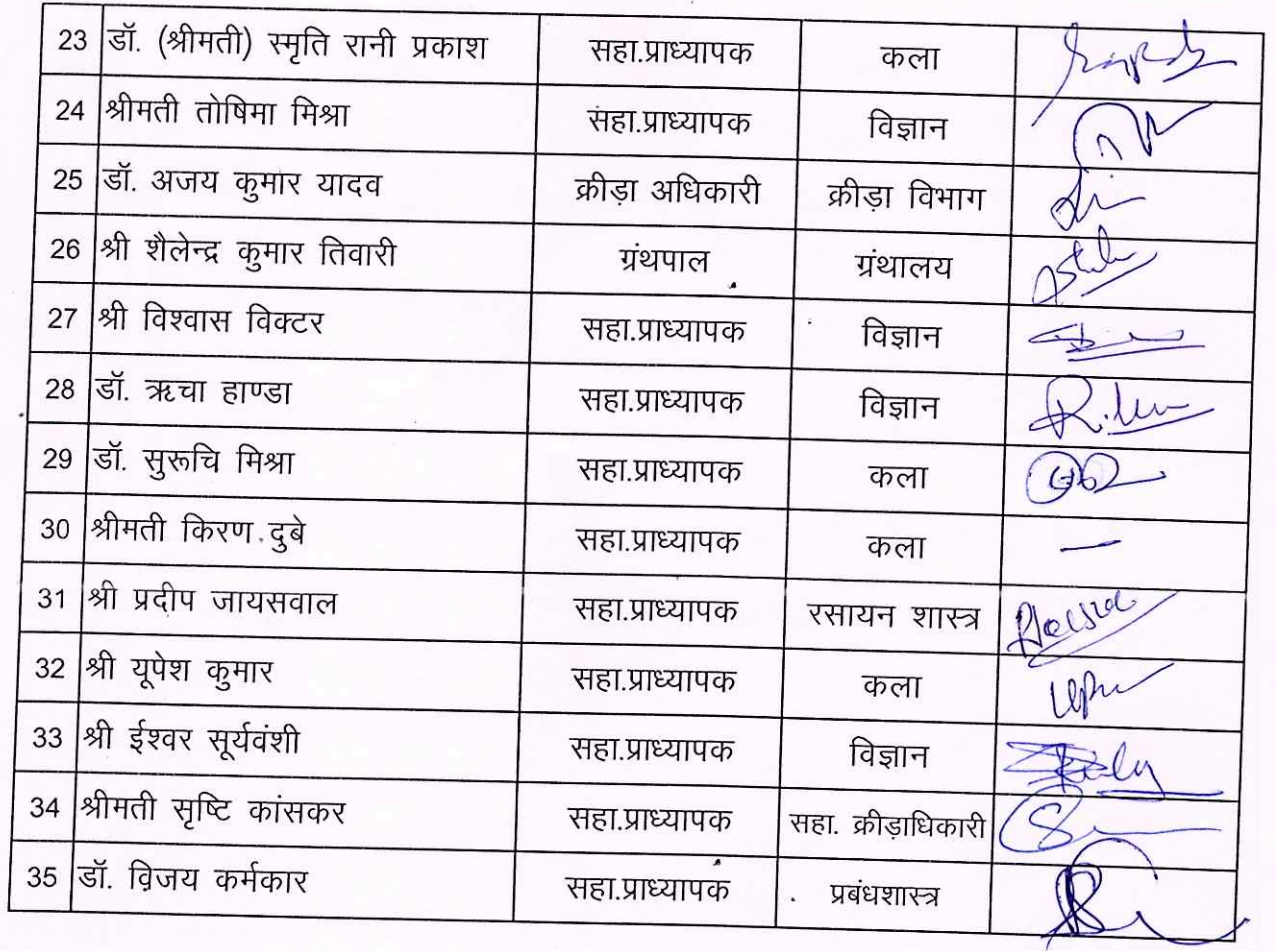 23 डॉ. (श्रीमती) स्मृति रानी प्रकाश सहा.प्राध्यापक कला
24 श्रीमती तोषिमा मिश्रा सहा.प्राध्यापक विज्ञान
25 डॉ. अजय कुमार यादव क्रीड़ा अधिकारी क्रीड़ा विभाग
26 श्री शैलेन्द्र कुमार तिवारी ग्रंथपाल ग्रंथालय
27 श्री विश्वास विक्टर सहा.प्राध्यापक विज्ञान
28 डॉ. ऋचा हाण्डा सहा.प्राध्यापक विज्ञान
29 डॉ. सुरूचि मिश्रा सहा.प्राध्यापक कला
30 श्रीमती किरण दुबे सहा.प्राध्यापक कला –
31 श्री प्रदीप जायसवाल सहा.प्राध्यापक रसायन शास्त्र
32 श्री यूपेश कुमार सहा.प्राध्यापक कला
33 श्री ईश्वर सूर्यवंशी सहा.प्राध्यापक विज्ञान
34 श्रीमती सृष्टि कांसकर सहा.प्राध्यापक सहा. क्रीड़ाधिकारी
35 डॉ. विजय कर्मकार सहा.प्राध्यापक प्रबंधशास्त्र